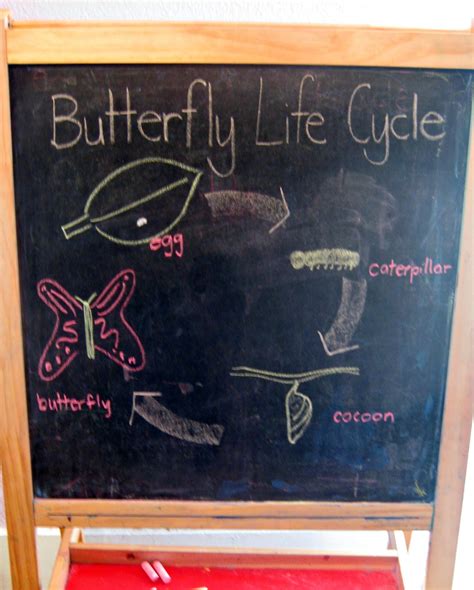 Butterfly Life Cycle
egg
caterpillar
cocoon
butterfly